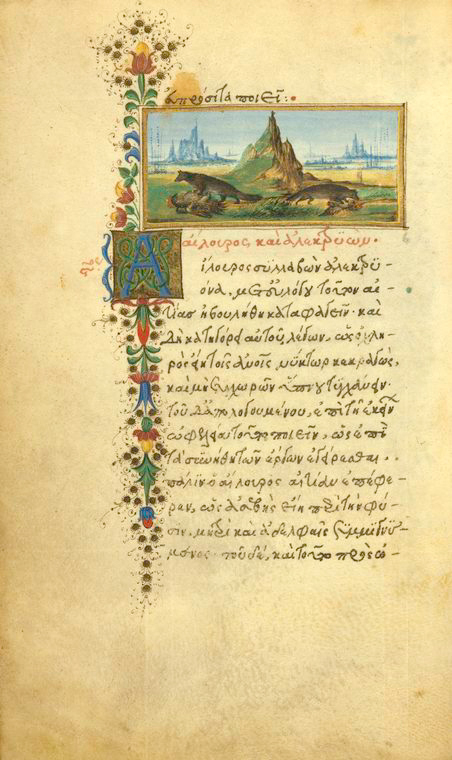 ἀπρόσιτα ποιεῖ:
αἴλουρος καὶ ἀλεκτρυών.
Αἴλουρος συλλαβὼν ἀλεκτρυ-
όνα, μετ' εὐλόγου τοῦτον αἰ-
τίας ἠβουλήθη καταφαγεῖν· καὶ
δὴ κατηγόρει αὐτοῦ, λέγων, ὡς ὀχλη-
ρὸς εἴη τοῖς ἀνθρώποις νύκτωρ κεκραγὼς,
καὶ μὴ συγχωρῶν ὕπνου τυγχάνειν·
τοῦ δ' ἀπολογουμένου, ἐπὶ τῇ ἐκείνων
ὠφελείᾳ τοῦτο ποιεῖν, ὡς ἐπὶ
τὰ συνήθη τῶν ἔργων ἐγείρεσθαι·
πάλιν ὁ αἴλουρος αἰτίαν ἐπέφε-
ρεν, ὡς ἀσεβὴς εἴη περὶ τὴν φύ-
σιν, μητρὶ καὶ ἀδελφαῖς συμμιγνύ-
μενος· τοῦ δὲ, καὶ τοῦτο πρὸς ὠ-